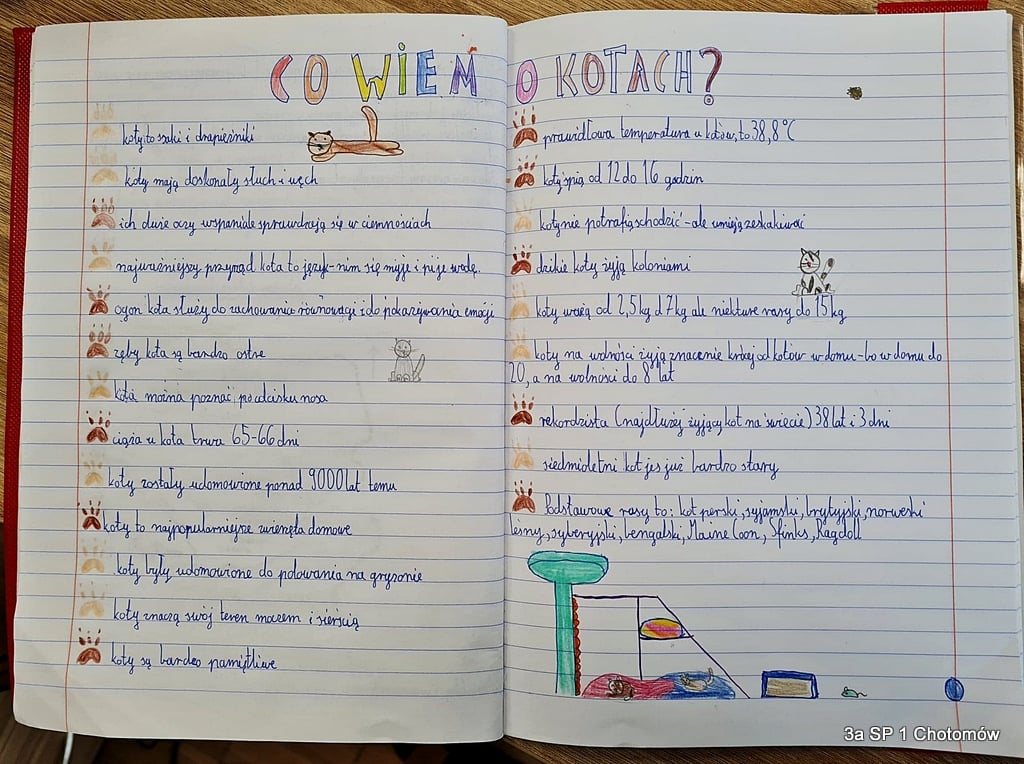 CO WIEM O KOTACH?
koty to ssaki i drapieżniki
kody mają doskonały słuch i węch
ich duże oczy wspaniale sprawdzają się w ciemnościach
najważniejszy przyrząd kota to język-nim się myje i pije wodę.
ogon kota służy do zachowania równowagi i do pokazywania emocji
zęby kota są bardzo ostre
kota można poznać po odcisku nosa
ciąża u kota trwa 65-66 dni
koty zostały udomowione ponad 9000 lat temu
koty to najpopularniejsze zwierzęta domowe
koty były udomowione do polowania na gryzonie
koty znaczą swój teren moczem i sierścią
koty są bardzo pamiętliwe
prawidłowa temperatura u kotów, to 38,8°C
koty śpią od 12 do 16 godzin
koty nie potrafią schodzić-ale umieją zeskakiwać
dzikie koty żyją koloniami
koty ważą od 2,5kg d 7kg ale niekture rasy do 15kg
koty na wolności żyją znacznie krócej od kotów w domu-bo w domu do
20, a na wolności do 8 lat
rekordzista (najdłużej żyjący kot na świecie) 38 lat i 3 dni
siedmioletni kot jes już bardzo stary
Podstawowe rasy to: kot perski, syjamski, brytyjski, norweski
leśny, syberyjski, bengalski, Maine Coon, Sfinks, Ragdoll
3a SP 1 Chotomów